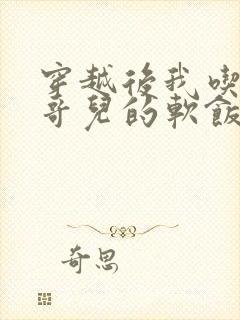 穿越後我喫
哥兒的軟飯
奇思